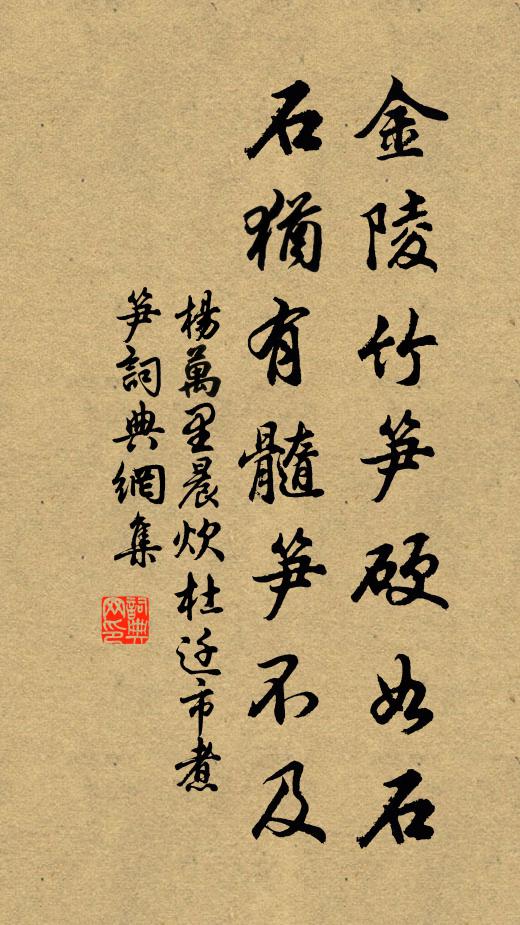 金陵竹笋硬如石
石猶有髓笋不及
楊萬里晨炊杜迁市煮
笋詞典網集
詞典
网印